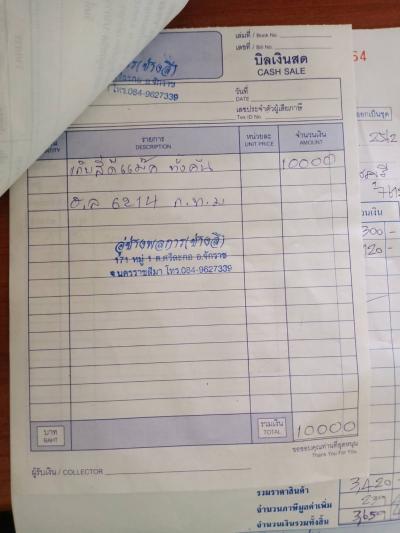 เล่มที่ / Book No.
เลขที่ / Bill No.
บิลเงินสด
CASH SALE
การ(ช่างสี)
ต.ศรีละกอ อ.จักราช
โทร.084-9627339
วันที่
DATE
เลขประจำตัวผู้เสียภาษี
Tax ID No.
รายการ
DESCRIPTION
หน่วยละ
UNIT PRICE
จำนวนเงิน
AMOUNT
เก็บสีดีแม็ค ทั้งคัน 10000
6214 ก.ท.ม
อู่ช่างพลการ(ช่างสี)
171 หมู่ 1 ต.ศรีละกอ อ.จักราช
จ.นครราชสีมา โทร.084-9627339
บาท
BAHT
รวมเงิน
TOTAL
10000
ขอขอบคุณท่านที่อุดหนุน
Thank You For You
ผู้รับเงิน / COLLECTOR
54
300 -
120 -
รวมราคาสินค้า 3,420
จำนวนภาษีมูลค่าเพิ่ม
จำนวนเงินรวมทั้งสิ้น